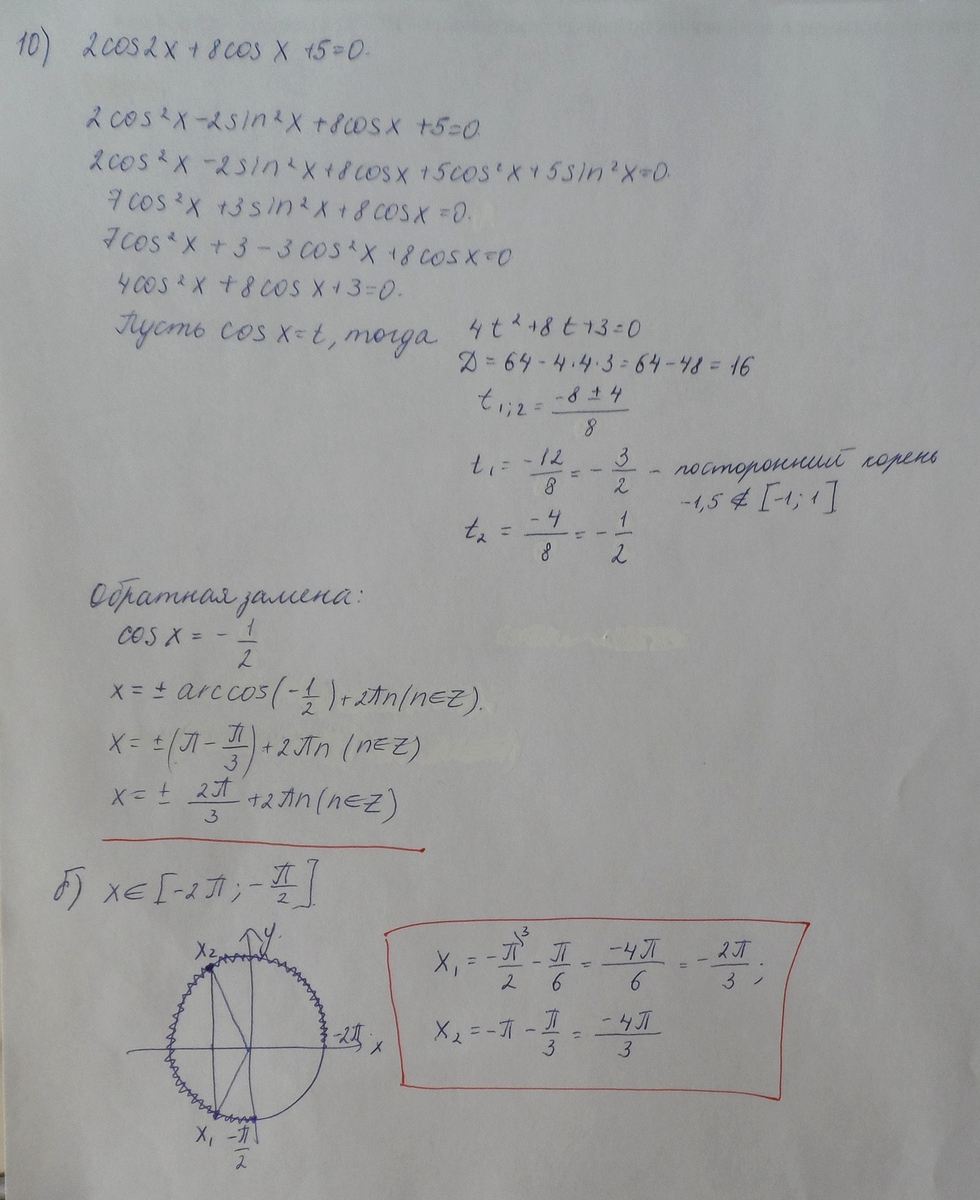 10) 2cos2x + 8cos x +5=0.
2cos²x -2sin²x +8cosx +5=0.
2cos²x -2sin²x +8cosx +5cos²x +5sin²x=0.
7cos²x +3sin²x +8cosx =0.
7cos²x + 3 - 3cos²x +8cosx=0
4cos²x +8cosx+3=0.
Пусть cos x=t, тогда 4t²+8t+3=0
D = 64 - 4·4·3 = 64 - 48 = 16
t₁;₂ = (-8 ± 4)/8
t₁ = -12/8 = -3/2 - посторонний корень
-1,5 ∉ [-1; 1]
t₂ = -4/8 = -1/2
Обратная замена:
cos x = -1/2
x = ± arccos(-1/2)+2πn(n∈Z).
x = ±(π - π/3)+2πn (n∈Z)
x = ± 2π/3 +2πn(n∈Z)
б) x∈ [-2π; -π/2].
y
x₂
-2π
x
x₁
-π/2
x₁ = -π\3/2 - π/6 = -4π/6 = -2π/3;
x₂ = -π - π/3 = -4π/3